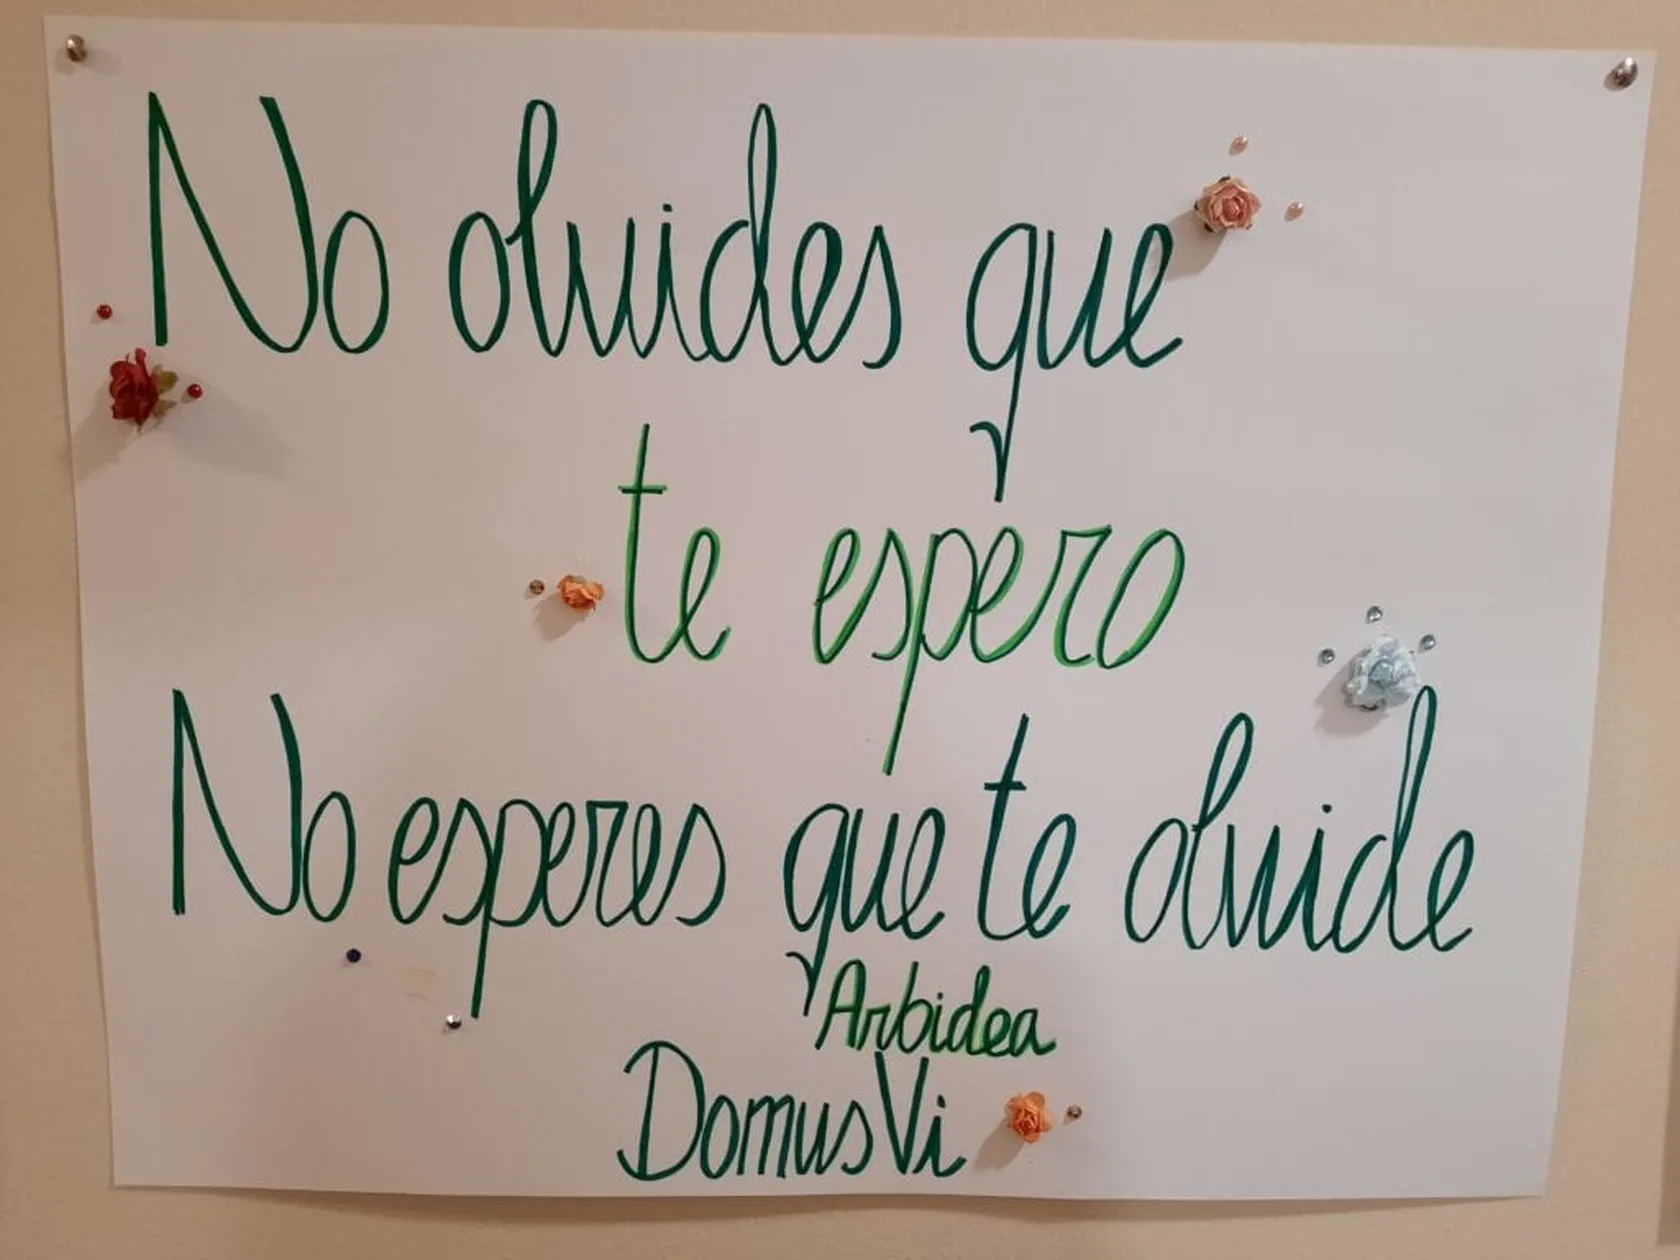 No olvides que
te espero
No esperes que te olvide
Arbidea
DomusVi